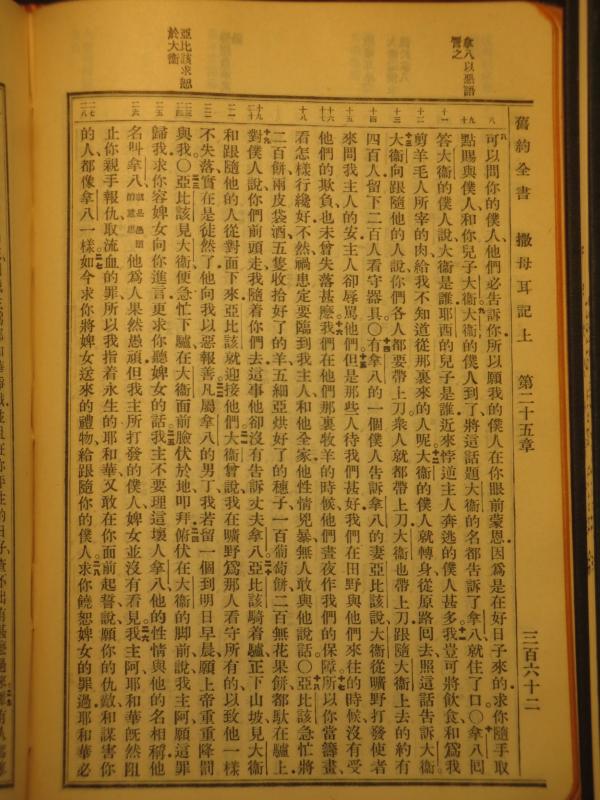 舊約全書 撒母耳記上 第二十五章 三百六十二
拿八以惡語詈之
亞比該求恕於大衛
可以問你的僕人他們必告訴你所以願我的僕人在你眼前蒙恩因爲是在好日子來的求你隨手取
點賜與僕人和你兒子大衛大衛的僕人到了將這話題大衛的名都告訴了拿八就住了口〇拿八囘
答大衛的僕人說大衛是誰耶西的兒子是誰近來悖逆主人奔逃的僕人甚多我豈可將飲食和爲我
剪羊毛人所宰的肉給我不知道從那裏來的人呢大衛的僕人就轉身從原路囘去照這話告訴大衛
大衛向跟隨他的人說你們各人都要帶上刀衆人就都帶上刀大衛也帶上刀跟隨大衛上去的約有
四百人留下二百人看守器具〇有拿八的一個僕人告訴拿八的妻亞比該說大衛從曠野打發使者
來問我主人的安主人卻辱罵他們但是那些人待我們甚好我們在田野與他們來往的時候沒有受
他們的欺負也未曾失落甚麽我們在他們那裏牧羊的時候他們晝夜作我們的保障所以你當籌畫
看怎樣行纔好不然禍患定要臨到我主人和他全家他性情兇暴無人敢與他說話〇亞比該急忙將
二百餅兩皮袋酒五隻收拾好了的羊五細亞烘好了的穗子一百葡萄餅二百無花果餅都馱在驢上
對僕人說你們前頭走我隨着你們去這事他卻沒有告訴丈夫拿八亞比該騎着驢正下山坡見大衛
和跟隨他的人從對面下來亞比該就迎接他們大衛曾說我在曠野爲那人看守所有的以致他一樣
不失落實在是徒然了他向我以惡報善凡屬拿八的男丁我若留一個到明日早晨願上帝重重降罰
與我〇亞比該見大衛便急忙下驢在大衛面前臉伏於地叩拜俯伏在大衛的脚前說我主阿願這罪
歸我求你容婢女向你進言更求你聽婢女的話我主不要理這壞人拿八他的性情與他的名相稱他
名叫拿八就是愚頑的意思他爲人果然愚頑但我主所打發的僕人婢女並沒有看見我主阿耶和華旣然阻
止你親手報仇取流血的罪所以我指着永生的耶和華又敢在你面前起誓說願你的仇敵和謀害你
的人都像拿八一樣如今求你將婢女送來的禮物給跟隨你的僕人求你饒恕婢女的罪過耶和華必